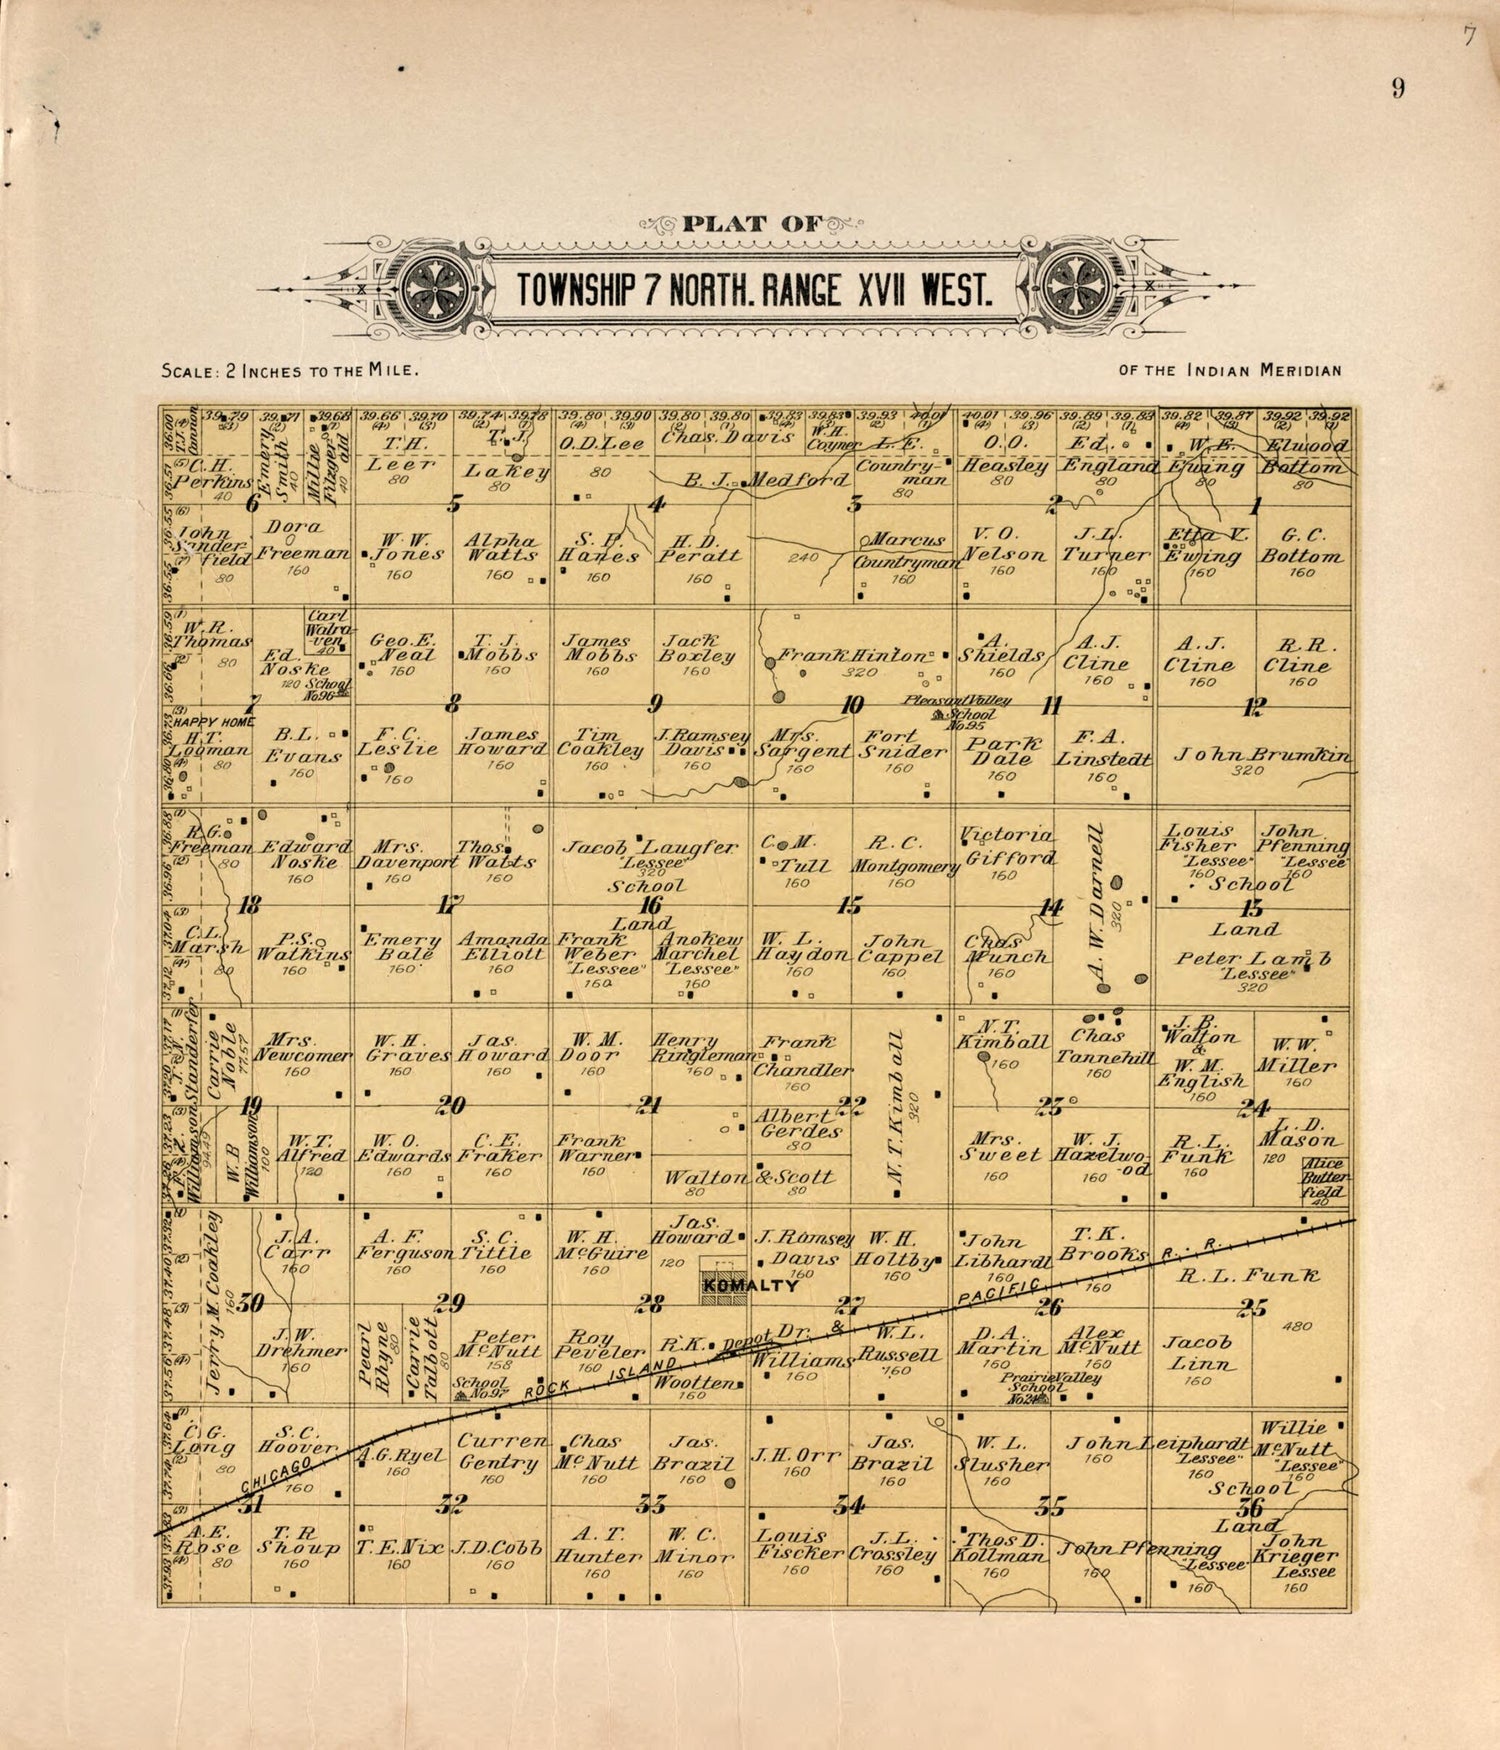 7
9
PLAT OF
TOWNSHIP 7 NORTH. RANGE XVII WEST.
SCALE: 2 INCHES TO THE MILE.
OF THE INDIAN MERIDIAN
39.79 39.71 39.68 39.66 39.70 39.74 39.78 39.80 39.90 39.80 39.80 39.83 39.83 39.93 40.01 40.01 39.96 39.89 39.83 39.82 39.87 39.92 39.92
C.H. Perkins 40
Emery Smith 40
Millie Filager 40
T.H. Leer 80
T.J. Lakey 80
O.D. Lee 80
Chas. Davis
B. J. Medford
W.H. Coyner
L.E. Countryman 80
O.O. Heasley 80
Ed. England 80
W.E. Ewing 80
Elwood Bottom 80
6 5 4 3 2 1
John Sanderfield 80
Dora Freeman 160
W.W. Jones 160
Alpha Watts 160
S.P. Hanes 160
H.D. Peratt 160
240
Marcus Countryman 160
V.O. Nelson 160
J.L. Turner 160
Etta V. Ewing 160
G.C. Bottom 160
W.R. Thomas 80
Ed. Noske 120
Carl Walraven 40
School No. 96
Geo. E. Neal 160
T.J. Mobbs 160
James Mobbs 160
Jack Boxley 160
Frank Hinton 320
A. Shields 160
A.J. Cline 160
A.J. Cline 160
R.R. Cline 160
7 8 9 10 11 12
Pleasant Valley School No. 95
HAPPY HOME
H.T. Logman 80
B.L. Evans 160
F.C. Leslie 160
James Howard 160
Tim Coakley 160
J. Ramsey Davis 160
Mrs. Sargent 160
Fort Snider 160
Park Dale 160
F.A. Linstedt 160
John Brumkin 320
R.G. Freeman 80
Edward Noske 160
Mrs. Davenport 160
Thos. Watts 160
Jacob Laugfer "Lessee" 320
School Land
C.M. Tull 160
R.C. Montgomery 160
Victoria Gifford 160
A.W. Darnell 320
Louis Fisher "Lessee" 160
John Pfenning "Lessee" 160
School Land
18 17 16 15 14 13
C.L. Marsh 80
P.S. Watkins 160
Emery Bale 160
Amanda Elliott 160
Frank Weber "Lessee" 160
Anokew Marchel "Lessee" 160
W.L. Haydon 160
John Cappel 160
Chas Munch 160
Peter Lamb "Lessee" 320
J.N. Standerfer
Carrie Noble 77.57
Mrs. Newcomer 160
W.H. Graves 160
Jas. Howard 160
W.M. Door 160
Henry Ringleman 160
Frank Chandler 160
N.T. Kimball 320
N.T. Kimball 160
Chas Tannehill 160
J.B. Walton & W.M. English 160
W.W. Miller 160
19 20 21 22 23 24
Williamson 94.49
W.B. Williamson 100
W.T. Alfred 120
W.O. Edwards 160
C.E. Fraker 160
Frank Warner 160
Albert Gerdes 80
Walton & Scott 80 80
Mrs. Sweet 160
W.J. Hazelwood 160
R.L. Funk 160
L.D. Mason 120
Alice Butterfield 40
Jerry M. Coakley 160
J.A. Carr 160
A.F. Ferguson 160
S.C. Tittle 160
W.H. McGuire 160
Jas. Howard 120
KOMALTY
J. Ramsey Davis 160
W.H. Holtby 160
John Libhardt 160
T.K. Brooks 160
R.L. Funk 480
30 29 28 27 26 25
J.W. Drehmer 160
Pearl Rhyne 80
Carrie Talbott 80
Peter McNutt 158
School No. 97
Roy Peveler 160
R.K. Wootten 160
Depot
Dr. Williams 160
W.L. Russell 160
D.A. Martin 160
Alex McNutt 160
Prairie Valley School No. 24
Jacob Linn 160
CHICAGO ROCK ISLAND & PACIFIC R. R.
C.G. Long 80
S.C. Hoover 160
A.G. Ryel 160
Curren Gentry 160
Chas McNutt 160
Jas. Brazil 160
J.H. Orr 160
Jas. Brazil 160
W.L. Slusher 160
John Leiphardt 160 "Lessee" 160
Willie McNutt "Lessee" 160
School Land
31 32 33 34 35 36
A.E. Rose 80
T.R Shoup 160
T.E. Nix 160
J.D. Cobb 160
A.T. Hunter 160
W.C. Minor 160
Louis Fischer 160
J.L. Crossley 160
Thos D. Kollman 160
John Pfenning 160 "Lessee" 160
John Krieger Lessee 160